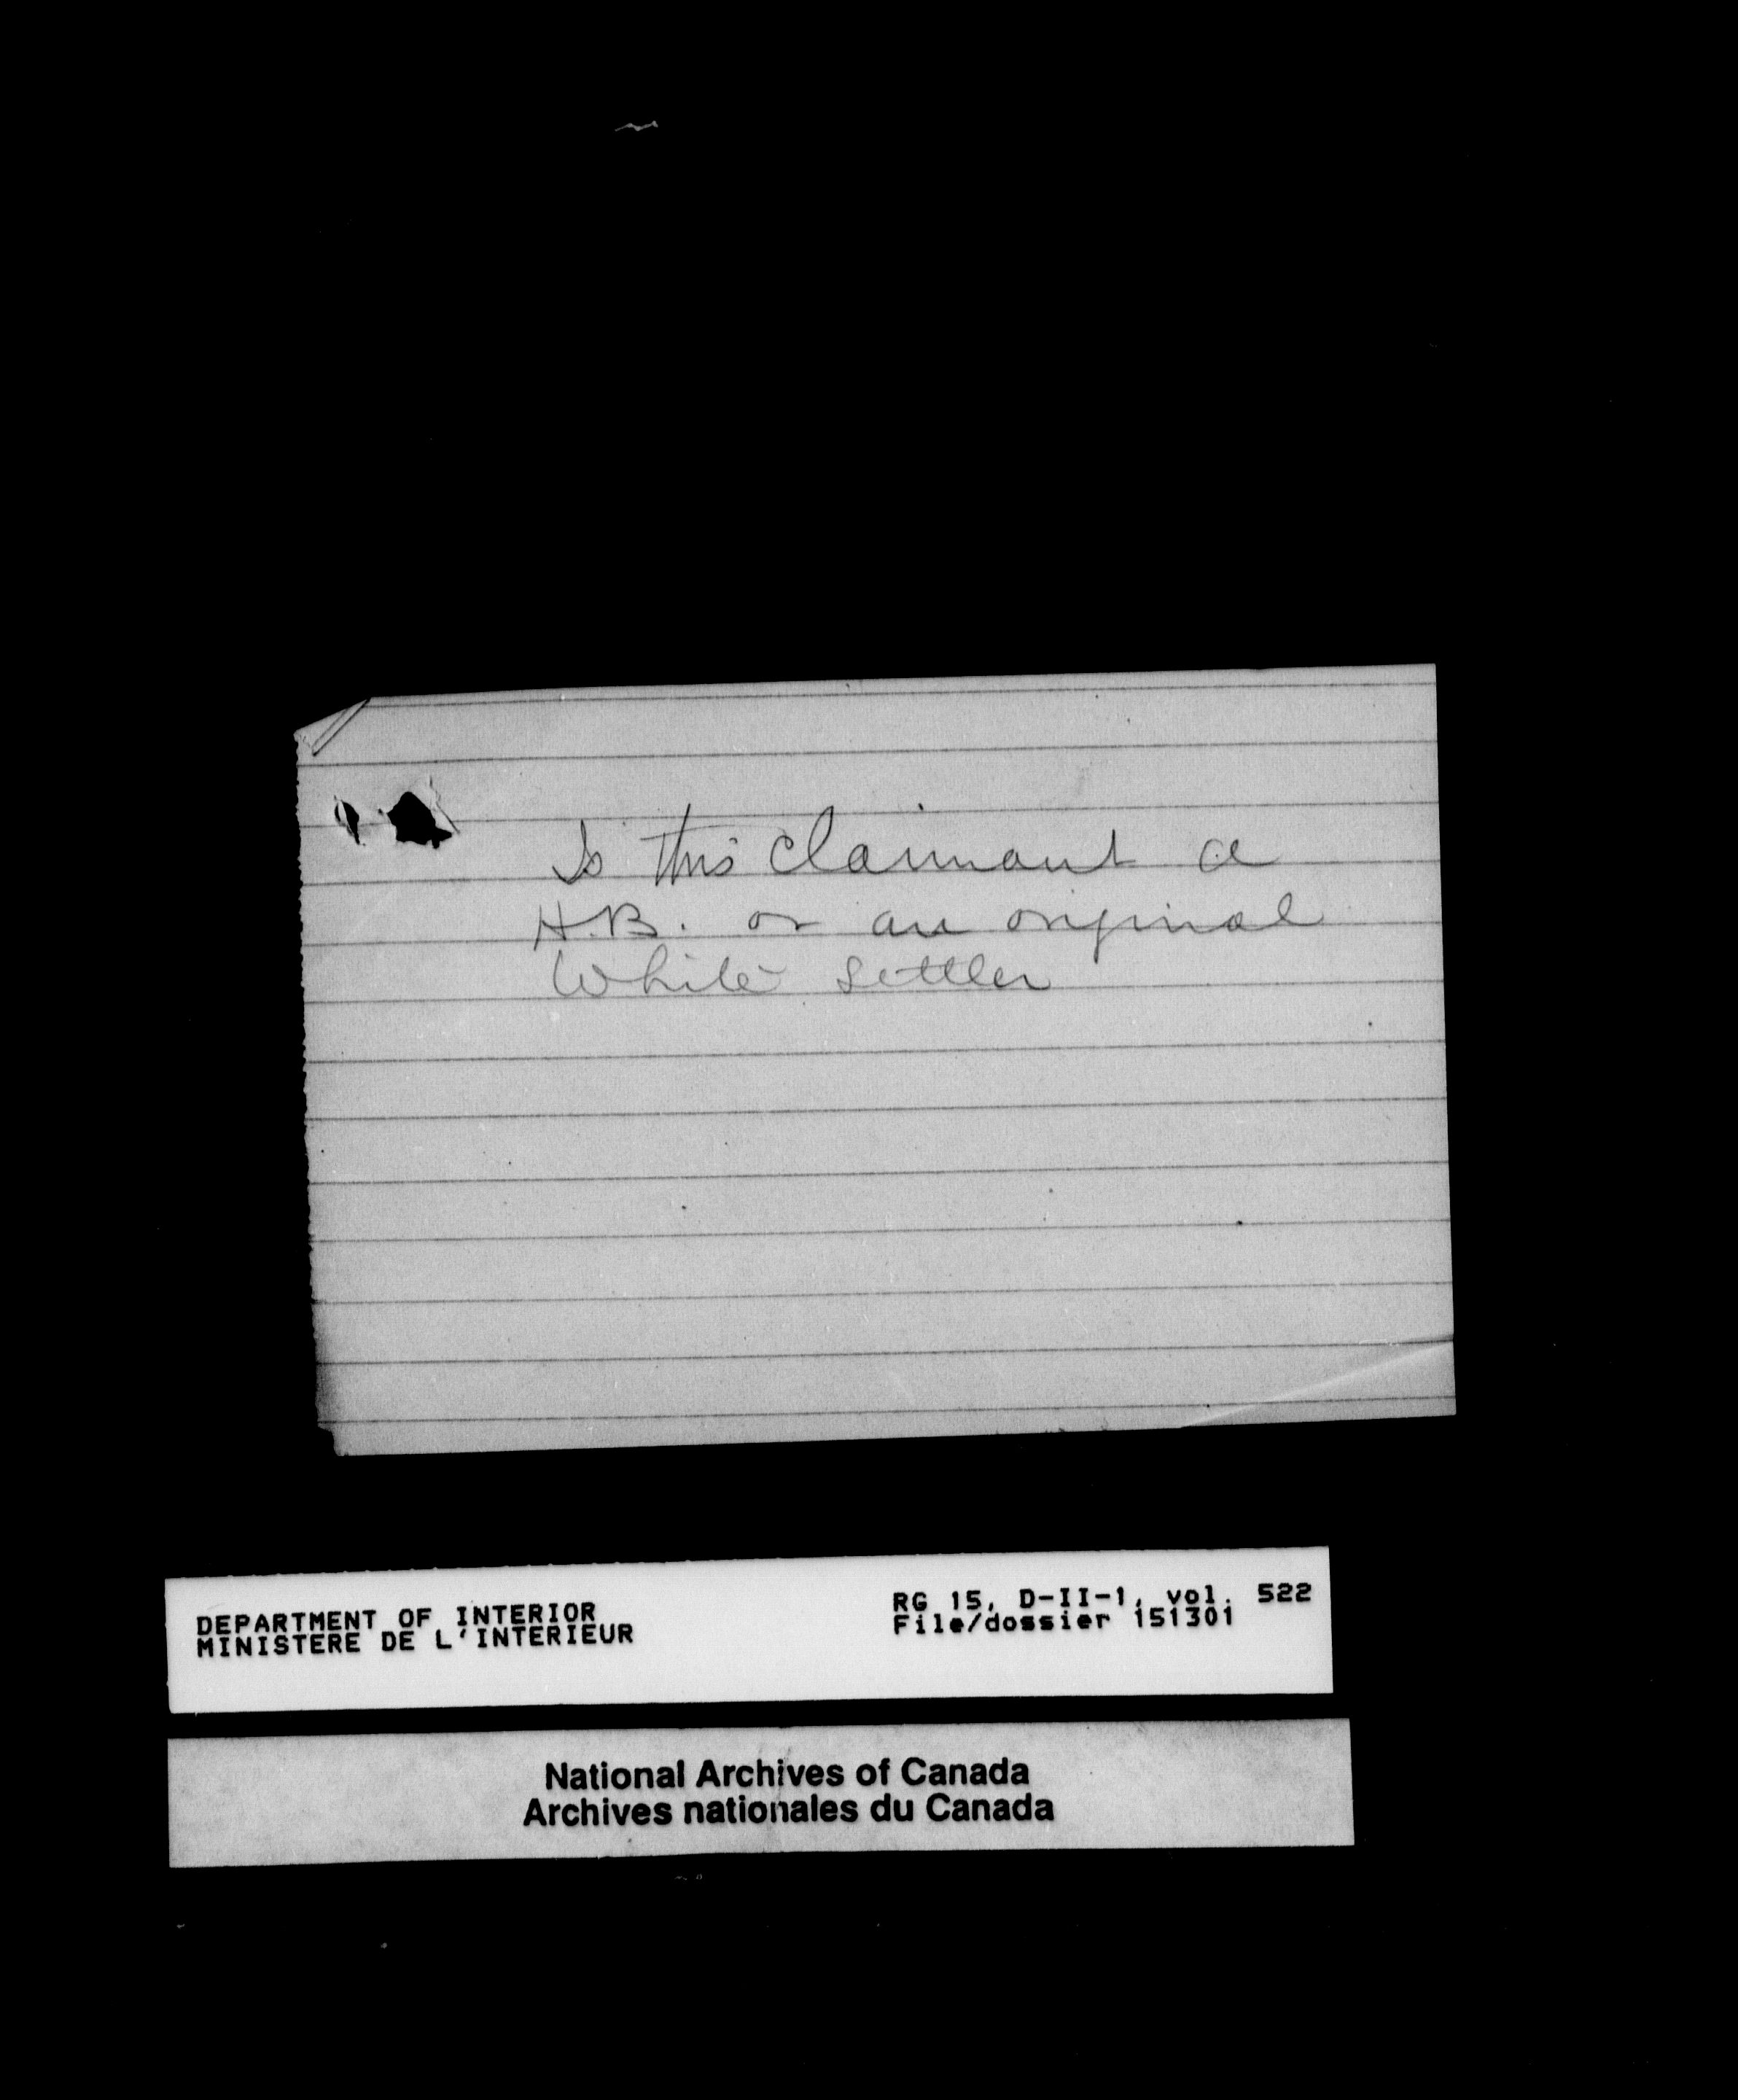 Is this claimant a
H.B. or an original
White settler
DEPARTMENT OF INTERIOR
MINISTERE DE L'INTERIEUR
RG 15, D-II-1, vol. 522
File/dossier 151301
National Archives of Canada
Archives nationales du Canada